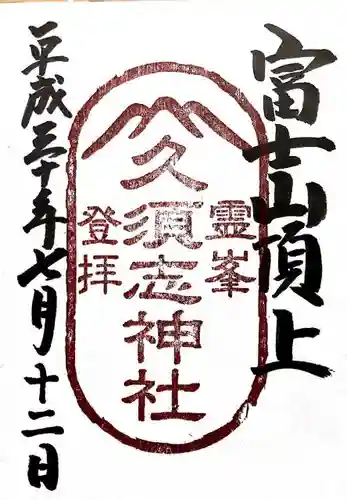 富士山頂上
霊峯
久須志神社
登拝
平成三十年七月十二日